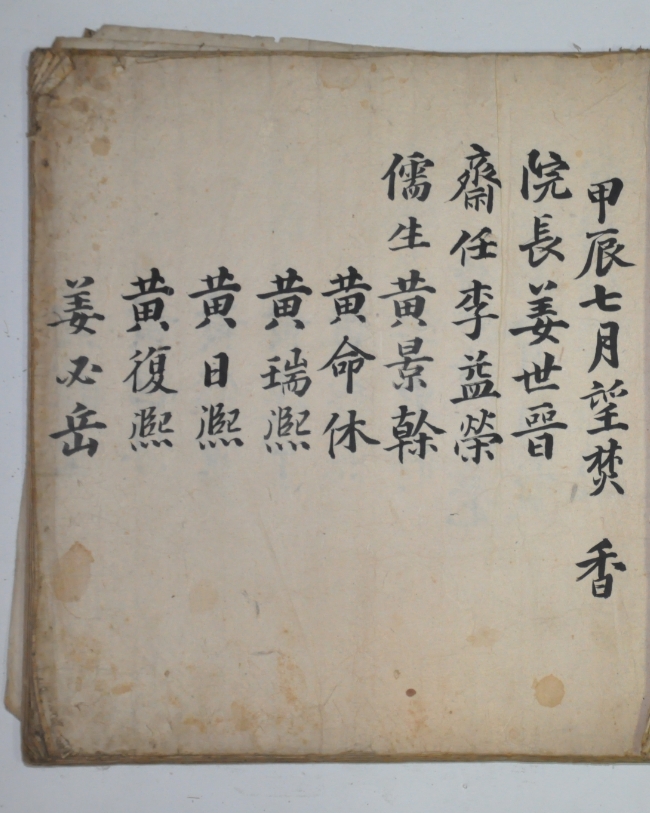 甲辰七月望焚 香
院長姜世晉
齋任李益榮
儒生黃景幹
黃命休
黃瑞熙
黃日熙
黃復熙
姜必岳